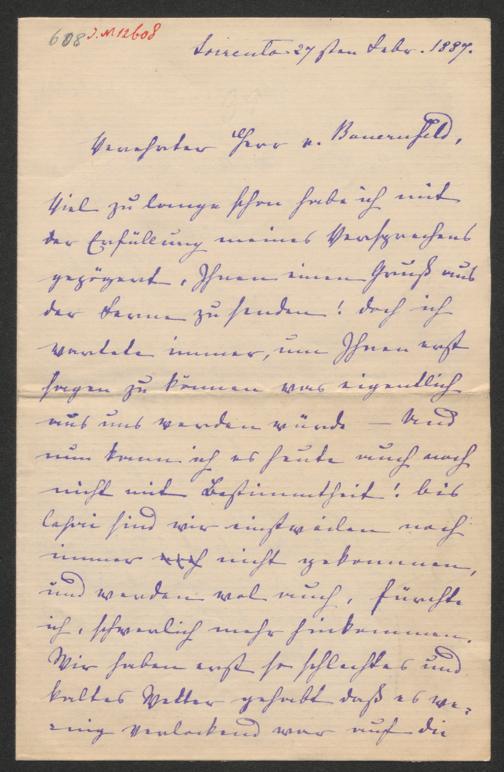 608 J.N 12608
Sorrento 27sten Febr. 1887.
Verehrter Herr v. Bauernfeld,
Viel zu lange schon habe ich mit
der Erfüllung meines Versprechens
gezögert, Ihnen einen Gruß aus
der Ferne zu senden! doch ich
wartete immer, um Ihnen erst
sagen zu können was eigentlich
aus uns werden würde – Und
nun kann ich es heute auch noch
nicht mit Bestimmtheit! bis
Capri sind wir einstweilen noch
immer nicht gekommen,
und werden wol auch, fürchte
ich, schwerlich mehr hinkommen.
Wir haben erst so schlechtes und
kaltes Wetter gehabt daß es we-
nig verlockend war auf die